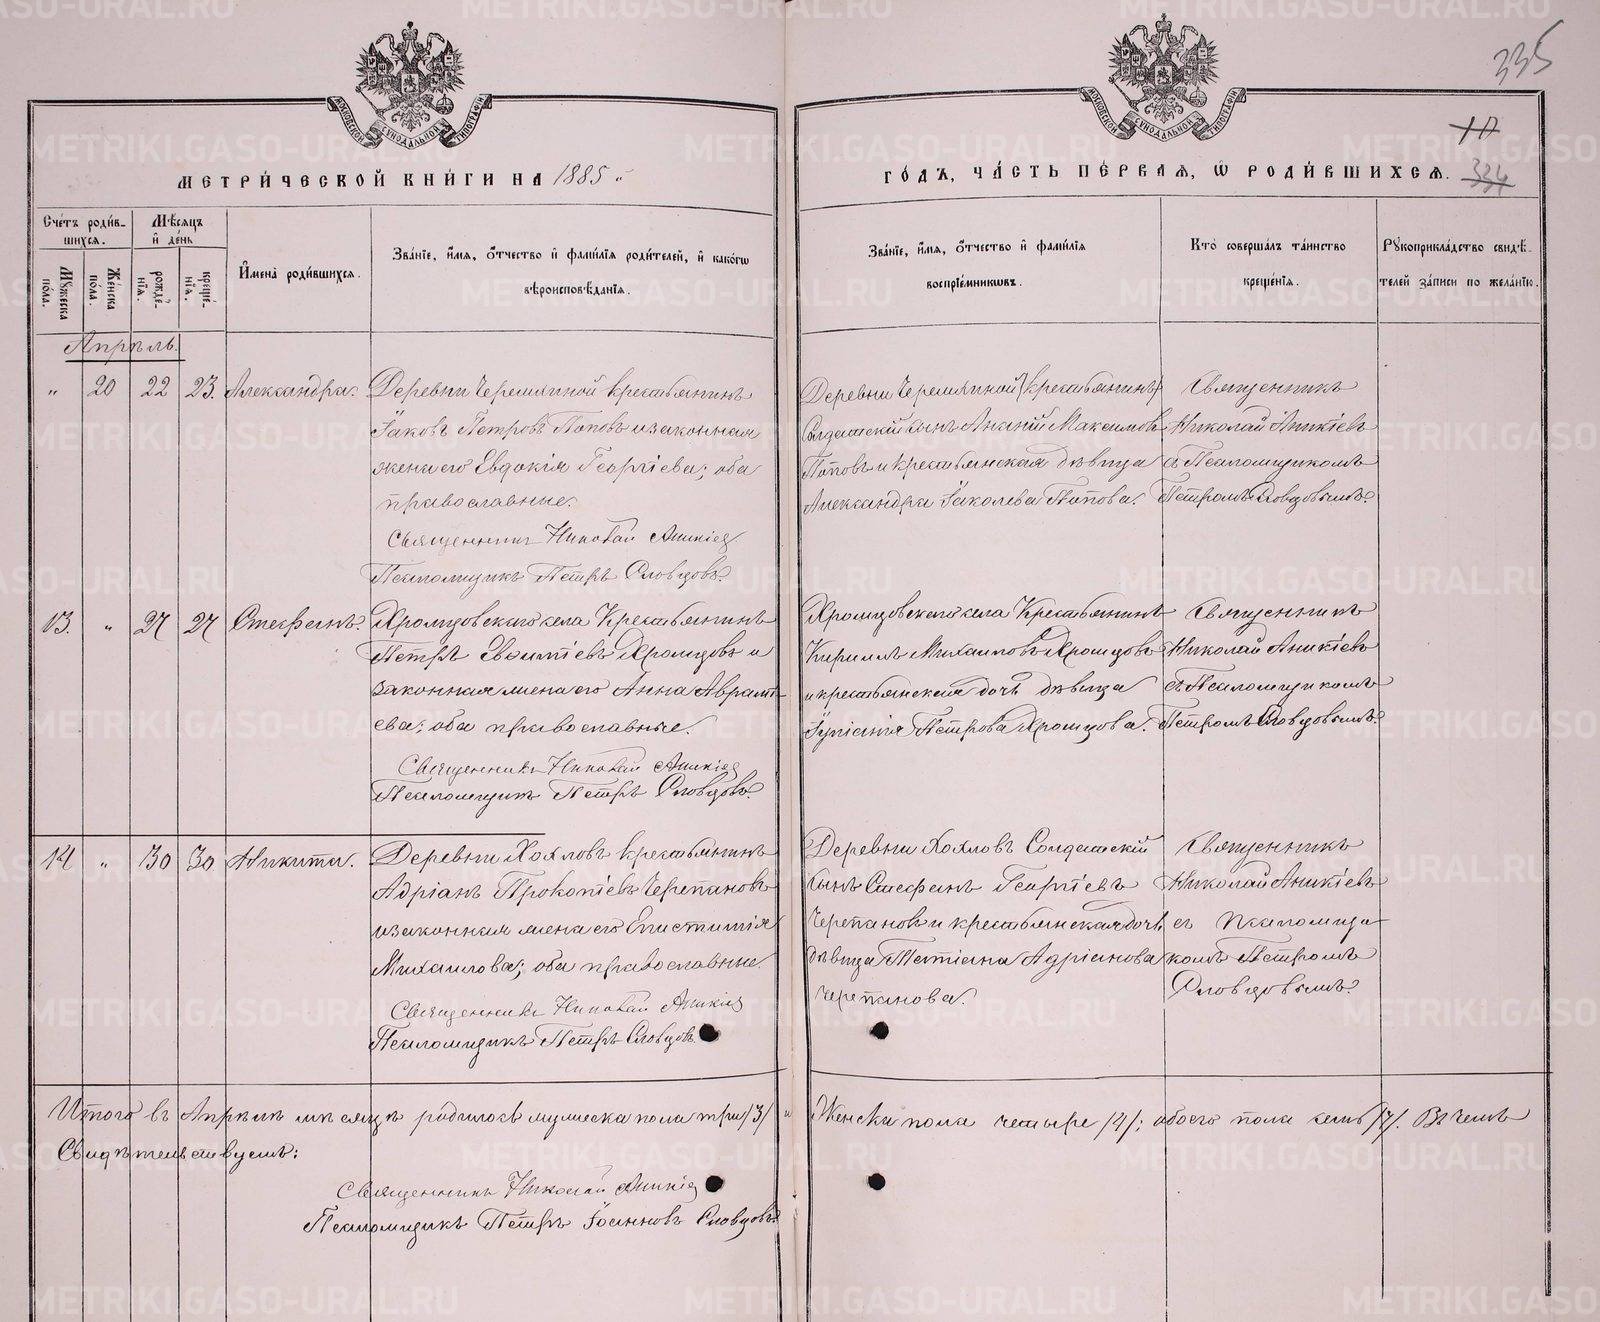 335
МОСКОВСКОЙ СѴНОДАЛЬНОЙ ТИПОГРАФІИ
МОСКОВСКОЙ СѴНОДАЛЬНОЙ ТИПОГРАФІИ
МЕТРИ́ЧЕСКОЙ КНИ́ГИ НА 1885
ГО́ДЪ, ЧА́СТЬ ПЕ́РВАЯ, Ѡ РОДИ́ВШИХСЯ. 334
Сче́тъ роди́в-
шихся.
Мѣ́сяцъ
и҆ де́нь
Мꙋ́жеска
по́ла.
Же́нска
по́ла.
рожде́-
нїя.
креще́-
нїя.
И҆мена̀ роди́вшихся.
Зва́нїе, и҆́мя, ѻ҆́тчество и҆ фами́лїя роди́телей, и҆ како́гѡ
вѣроисповѣ́данїя.
Зва́нїе, и҆́мя, ѻ҆́тчество и҆ фами́лїя
воспрїе́мникѡвъ.
Кто̀ соверша́лъ та́инство
креще́нїя.
Рꙋкоприкла́дство свидѣ́-
телей за́писи по жела́нїю.
Апрѣль.
" 20 22 23. Александра. Деревни Черемшиной крестьянинъ
Іаковъ Петровъ Поповъ и законная
жена его Евдокія Георгіева; оба
православные.
Священникъ Николай Аникіев
Псаломщикъ Петръ Словцовъ.
Деревни Черемшиной (крестьянинъ)
Солдатскій сынъ Ананій Максимовъ
Поповъ и крестьянская дѣвица
Александра Іаковлева Попова.
Священникъ
Николай Аникіевъ
съ Псаломщикомъ
Петромъ Словцовымъ.
13. " 27 27 Стефанъ. Хромцовскаго села Крестьянинъ
Петръ Евѳиміевъ Хромцовъ и
законная жена его Анна Аврамі-
ева; оба православные.
Священникъ Николай Аникіев
Псаломщикъ Петръ Словцовъ.
Хромцовскаго села Крестьянинъ
Кириллъ Михаиловъ Хромцовъ
и крестьянская дочь дѣвица
Іуліанія Петрова Хромцова.
Священникъ
Николай Аникіевъ
съ Псаломщикомъ
Петромъ Словцовымъ.
14 " 30 30 Никита. Деревни Хохловъ крестьянинъ
Адріанъ Прокопіевъ Черепановъ
и законная жена его Епистимія
Михаилова; оба православные.
Священникъ Николай Аникіев
Псаломщикъ Петръ Словцовъ.
Деревни Хохловъ Солдатскій
сынъ Стефанъ Георгіевъ
Черепановъ и крестьянская дочь
дѣвица Татіана Адріанова
Черепанова.
Священникъ
Николай Аникіевъ
съ Псаломщи-
комъ Петромъ
Словцовымъ.
Итого въ Апрѣлѣ мѣсяцѣ родилось мужеска пола три /3/ и Женска пола четыре /4/; обоего пола семь /7/. Въ чемъ
Свидѣтельствуемъ:
Священникъ Николай Аникіев
Псаломщикъ Петръ Іоанновъ Словцовъ.
METRIKI.GASO-URAL.RU